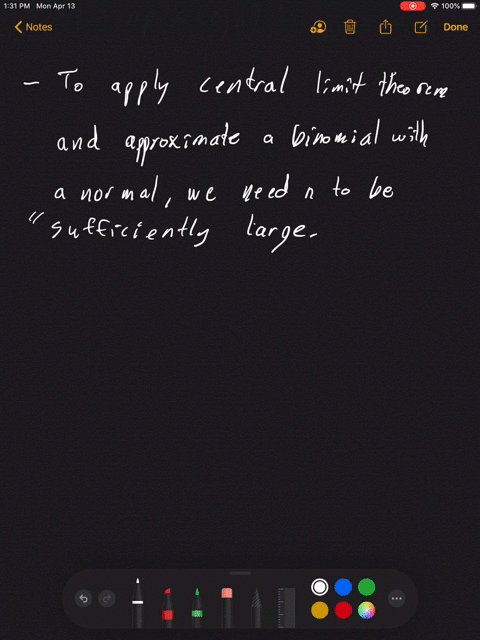 1:31 PM Mon Apr 13
100%
Notes
Done
- To apply central limit theorem
and approximate a binomial with
a normal, we need n to be
"sufficiently large.